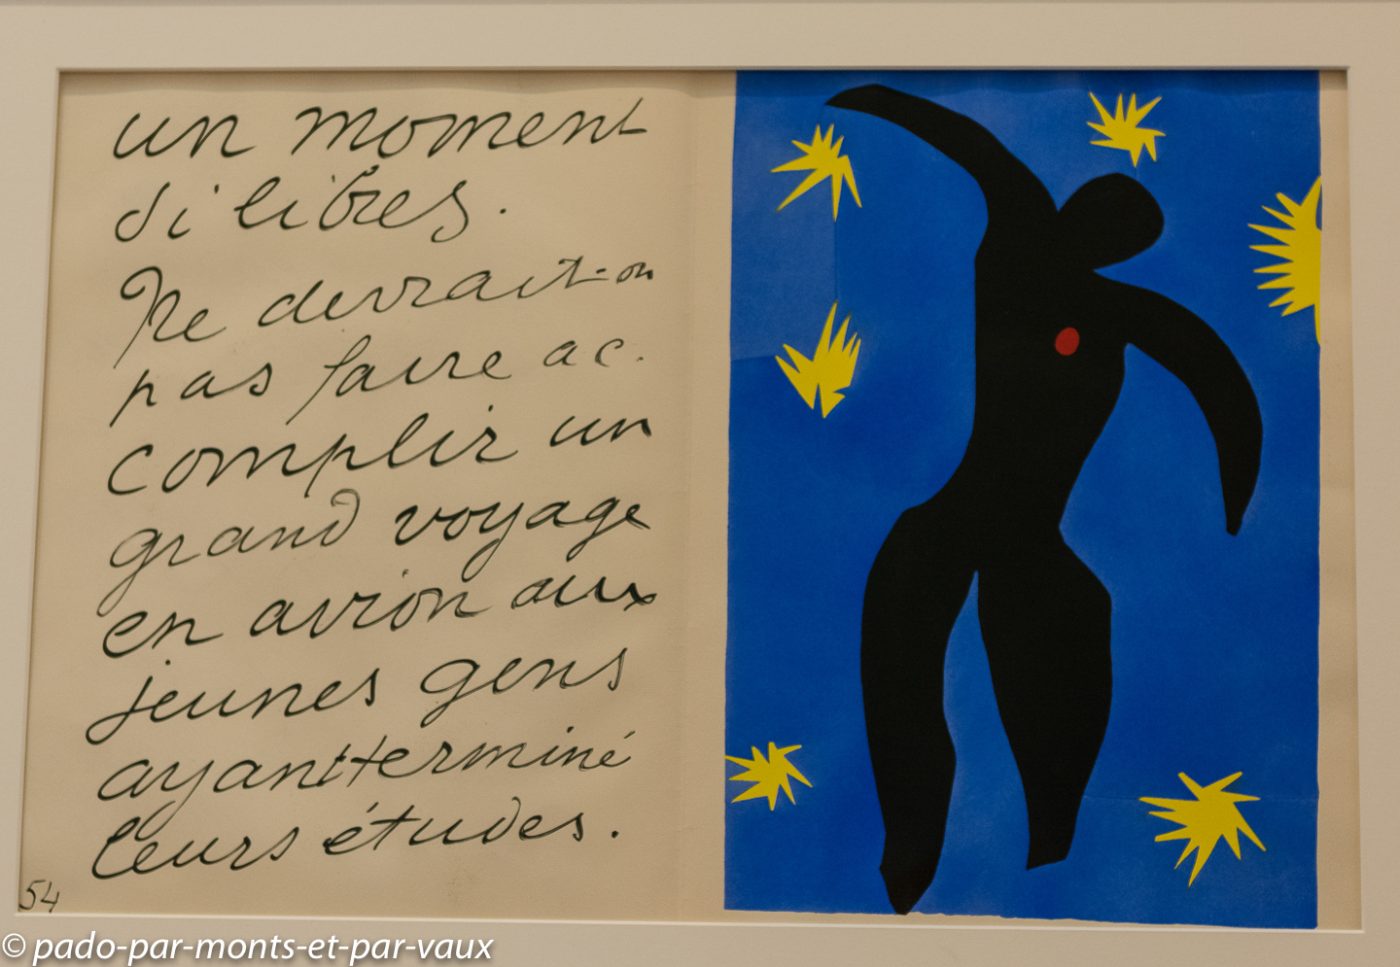 un moment
si libres.
Ne devrait-on
pas faire ac.
complir un
grand voyage
en avion aux
jeunes gens
ayant terminé
leurs études.
54
© pado-par-monts-et-par-vaux